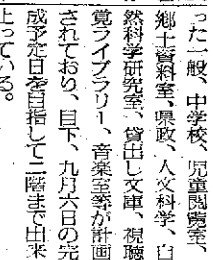 った一般、中学校、児童閲覧室、
郷土資料室、県政、人文科学、自
然科学研究室、貸出し文庫、視聴
覚ライブラリー、音楽室等が計画
されており、目下、九月六日の完
成予定日を目指して二階まで出来
上っている。